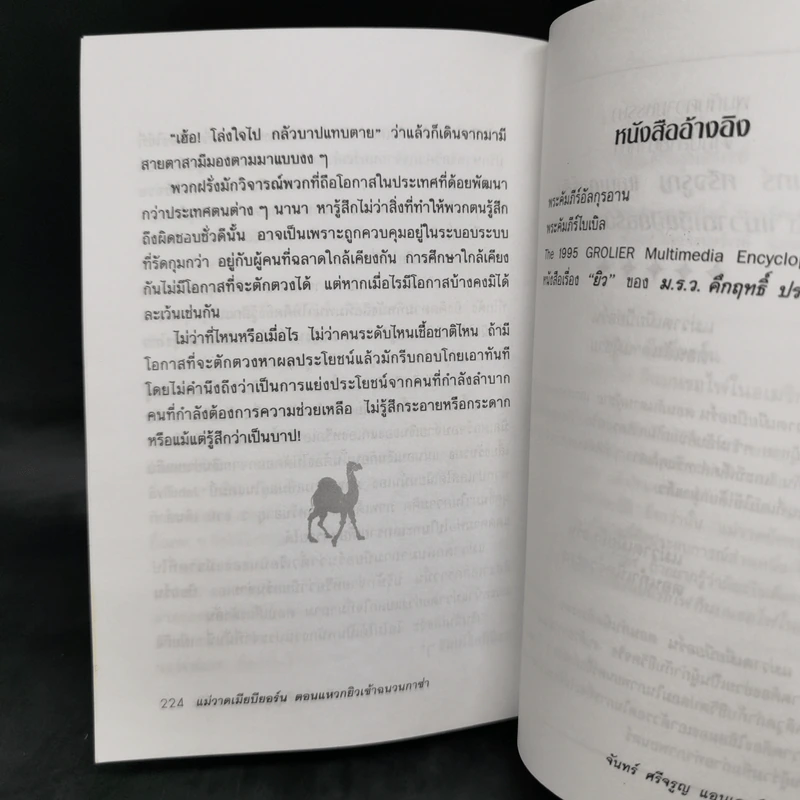 "เฮ้อ! โล่งใจไป กลัวบาปแทบตาย" ว่าแล้วก็เดินจากมามี
สายตาสามีมองตามมาแบบงง ๆ
พวกฝรั่งมักวิจารณ์พวกที่ถือโอกาสในประเทศที่ด้อยพัฒนา
กว่าประเทศตนต่าง ๆ นานา หารู้สึกไม่ว่าสิ่งที่ทำให้พวกตนรู้สึก
ถึงผิดชอบชั่วดีนั้น อาจเป็นเพราะถูกควบคุมอยู่ในระบอบระบบ
ที่รัดกุมกว่า อยู่กับผู้คนที่ฉลาดใกล้เคียงกัน การศึกษาใกล้เคียง
กันไม่มีโอกาสที่จะตักตวงได้ แต่หากเมื่อไรมีโอกาสบ้างคงมิได้
ละเว้นเช่นกัน
ไม่ว่าที่ไหนหรือเมื่อไร ไม่ว่าคนระดับไหนเชื้อชาติไหน ถ้ามี
โอกาสที่จะตักตวงหาผลประโยชน์แล้วมักรีบกอบโกยเอาทันที
โดยไม่คำนึงถึงว่าเป็นการแย่งประโยชน์จากคนที่กำลังลำบาก
คนที่กำลังต้องการความช่วยเหลือ ไม่รู้สึกระอายหรือกระดาก
หรือแม้แต่รู้สึกว่าเป็นบาป!
224 แม่วาดเมียบียอร์น ตอนแหวกยิวเข้าฉนวนกาซ่า
หนังสืออ้างอิง
พระคัมภีร์อัลกุรอาน
พระคัมภีร์ไบเบิล
The 1995 GROLIER Multimedia Encyclop
หนังสือเรื่อง "ยิว" ของ ม.ร.ว. คึกฤทธิ์ ปร
จันทร์ ศรีจรูญ แอนเ